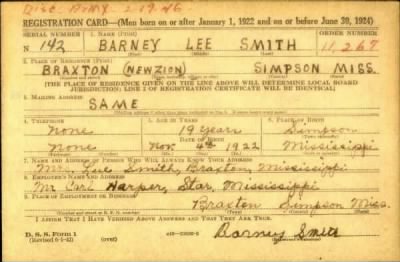 Disc. Army 2-19-46
REGISTRATION CARD—(Men born on or after January 1, 1922 and on or before June 30, 1924)
SERIAL NUMBER 1. NAME (Print) ORDER NUMBER
N 142 BARNEY LEE SMITH 11,267
(First) (Middle) (Last)
2. PLACE OF RESIDENCE (Print)
BRAXTON (NEW ZION) SIMPSON MISS.
[THE PLACE OF RESIDENCE GIVEN ON THE LINE ABOVE WILL DETERMINE LOCAL BOARD
JURISDICTION; LINE 2 OF REGISTRATION CERTIFICATE WILL BE IDENTICAL]
3. MAILING ADDRESS
SAME
4. TELEPHONE 5. AGE IN YEARS 6. PLACE OF BIRTH
None 19 Years Simpson
DATE OF BIRTH
None Nov. 4th 1922 Mississippi
7. NAME AND ADDRESS OF PERSON WHO WILL ALWAYS KNOW YOUR ADDRESS
Smith, Braxton, Mississippi
8. EMPLOYER'S NAME AND ADDRESS
Mr Carl Harper, Star, Mississippi
9. PLACE OF EMPLOYMENT OR BUSINESS
Braxton Simpson Miss.
I AFFIRM THAT I HAVE VERIFIED ABOVE ANSWERS AND THAT THEY ARE TRUE.
D. S. S. Form 1
(over) Barney Smith